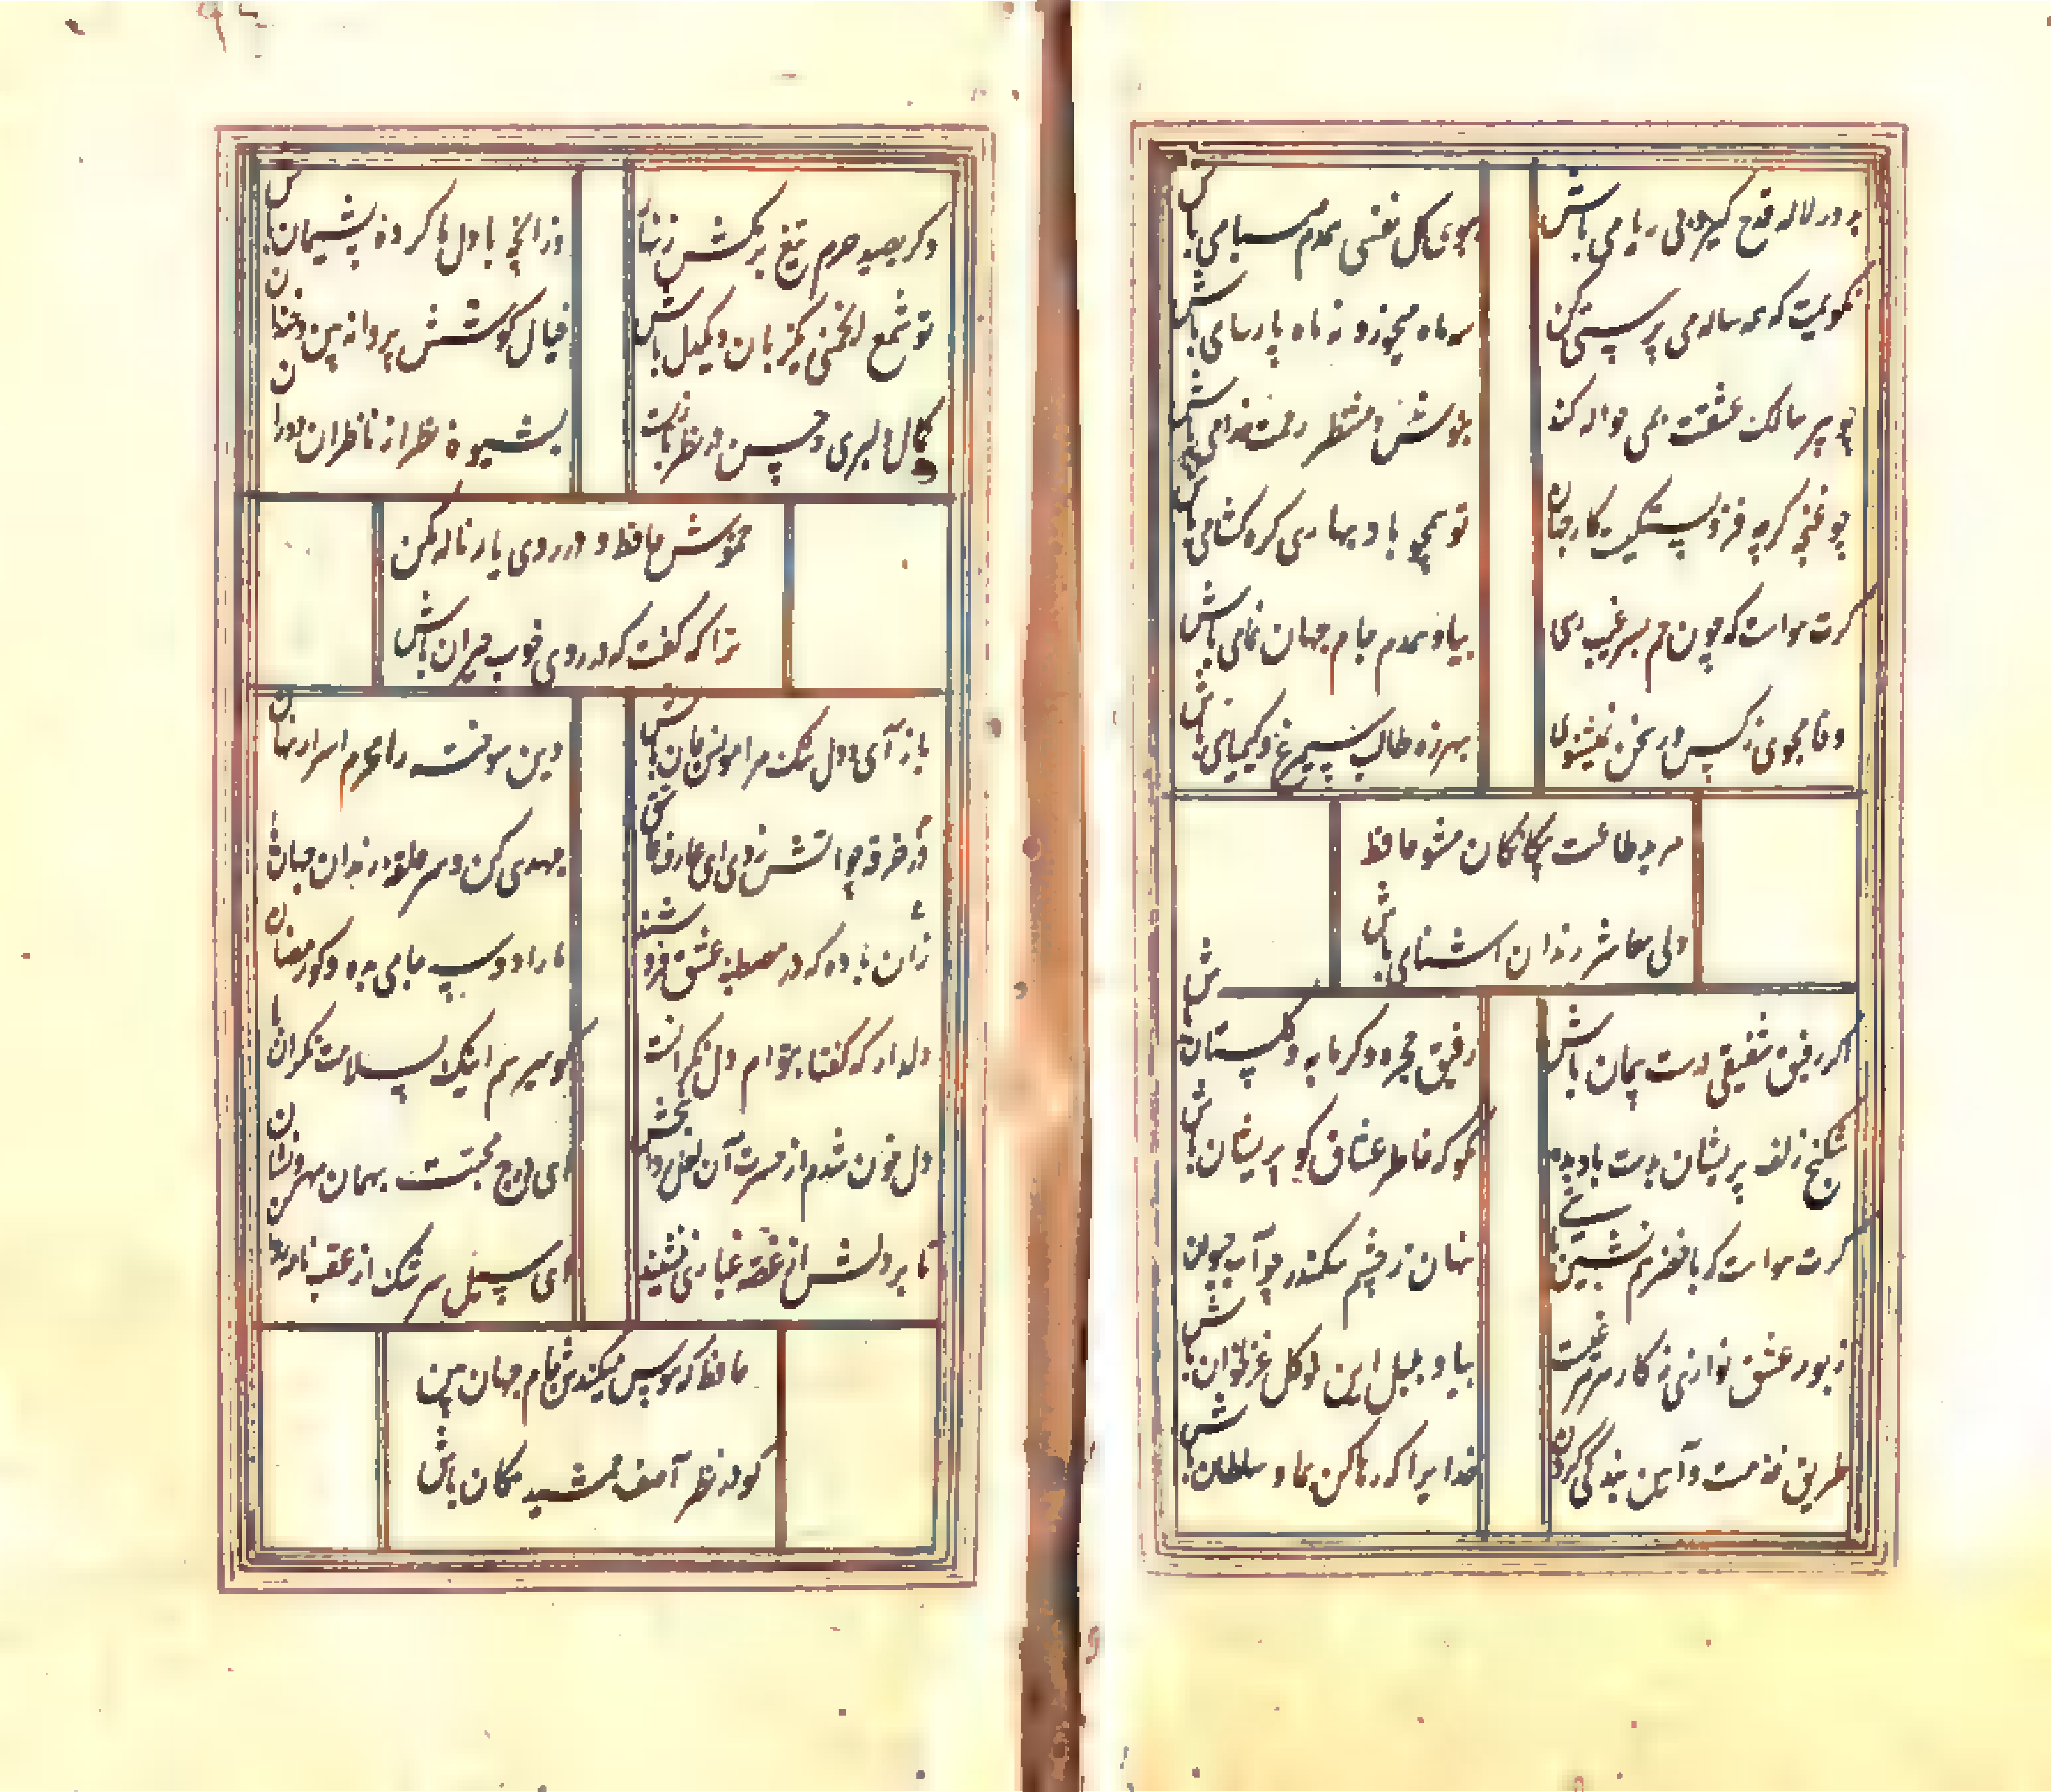 بدور لاله قدح گیر و بی ریا می باش
ببوی گل نفسی همدم صبا می باش
نگویمت که همه ساله می پرستی کن
سه ماه میخور و نه ماه پارسا می باش
چو پیر سالک عشقت بمی حواله کند
بنوش و منتظر رحمت خدا می باش
چو غنچه گرچه فروبستگیست کار جهان
تو همچو باد بهاری گره گشا می باش
گرت هواست که چون جم بسر غیب رسی
بیا و همدم جام جهان نما می باش
وفا مجوی ز کس ور سخن نمیشنوی
بهرزه طالب سیمرغ و کیمیا می باش
مرید طاعت بیگانگان مشو حافظ
ولی معاشر رندان آشنا می باش
اگر رفیق شفیقی درست پیمان باش
رفیق حجره و گرمابه و گلستان باش
شکنج زلف پریشان بدست باد مده
مگو که خاطر عشاق گو پریشان باش
گرت هواست که با خضر همنشین باشی
نهان ز چشم سکندر چو آب حیوان باش
زبور عشق نوازی نه کار هر مرغیست
بیا و بلبل این نوگل غزلخوان باش
طریق خدمت و آیین بندگی کردن
خدایرا که رها کن بما و سلطان باش
دگر بصید حرم تیغ برمکش زنهار
وز آنچه با دل ما کرده پشیمان باش
تو شمع انجمنی یکزبان و یکدل باش
خیال کوشش پروانه بین و خندان
کمال دلبری و حسن در نظربازیست
بشیوه نظر از ناظران دوران
خموش حافظ و در روی یار ناله مکن
ترا که گفت که در روی خوب حیران باش
باز آی و دل تنگ مرا مونس جان باش
وین سوخته را محرم اسرار نهان
در خرقه چو آتش زدی ای عارف سالک
جهدی کن و سر حلقه رندان جهان باش
زان باده که در مصطبه عشق فروشند
ما را دو سه جامی بده و گو رمضان
دلدار که گفتا بتوام دل نگرانست
گو میرسم اینک بسلامت نگران باش
دل خون شدم از حسرت آن لعل روانبخش
ای درج محبت بهمان مهر و نشان
تا بر دلش از غصه غباری ننشیند
ای سیل سرشک از عقب نامه روان
حافظ که هوس میکندش جام جهان بین
گو در نظر آصف جمشید مکان باش